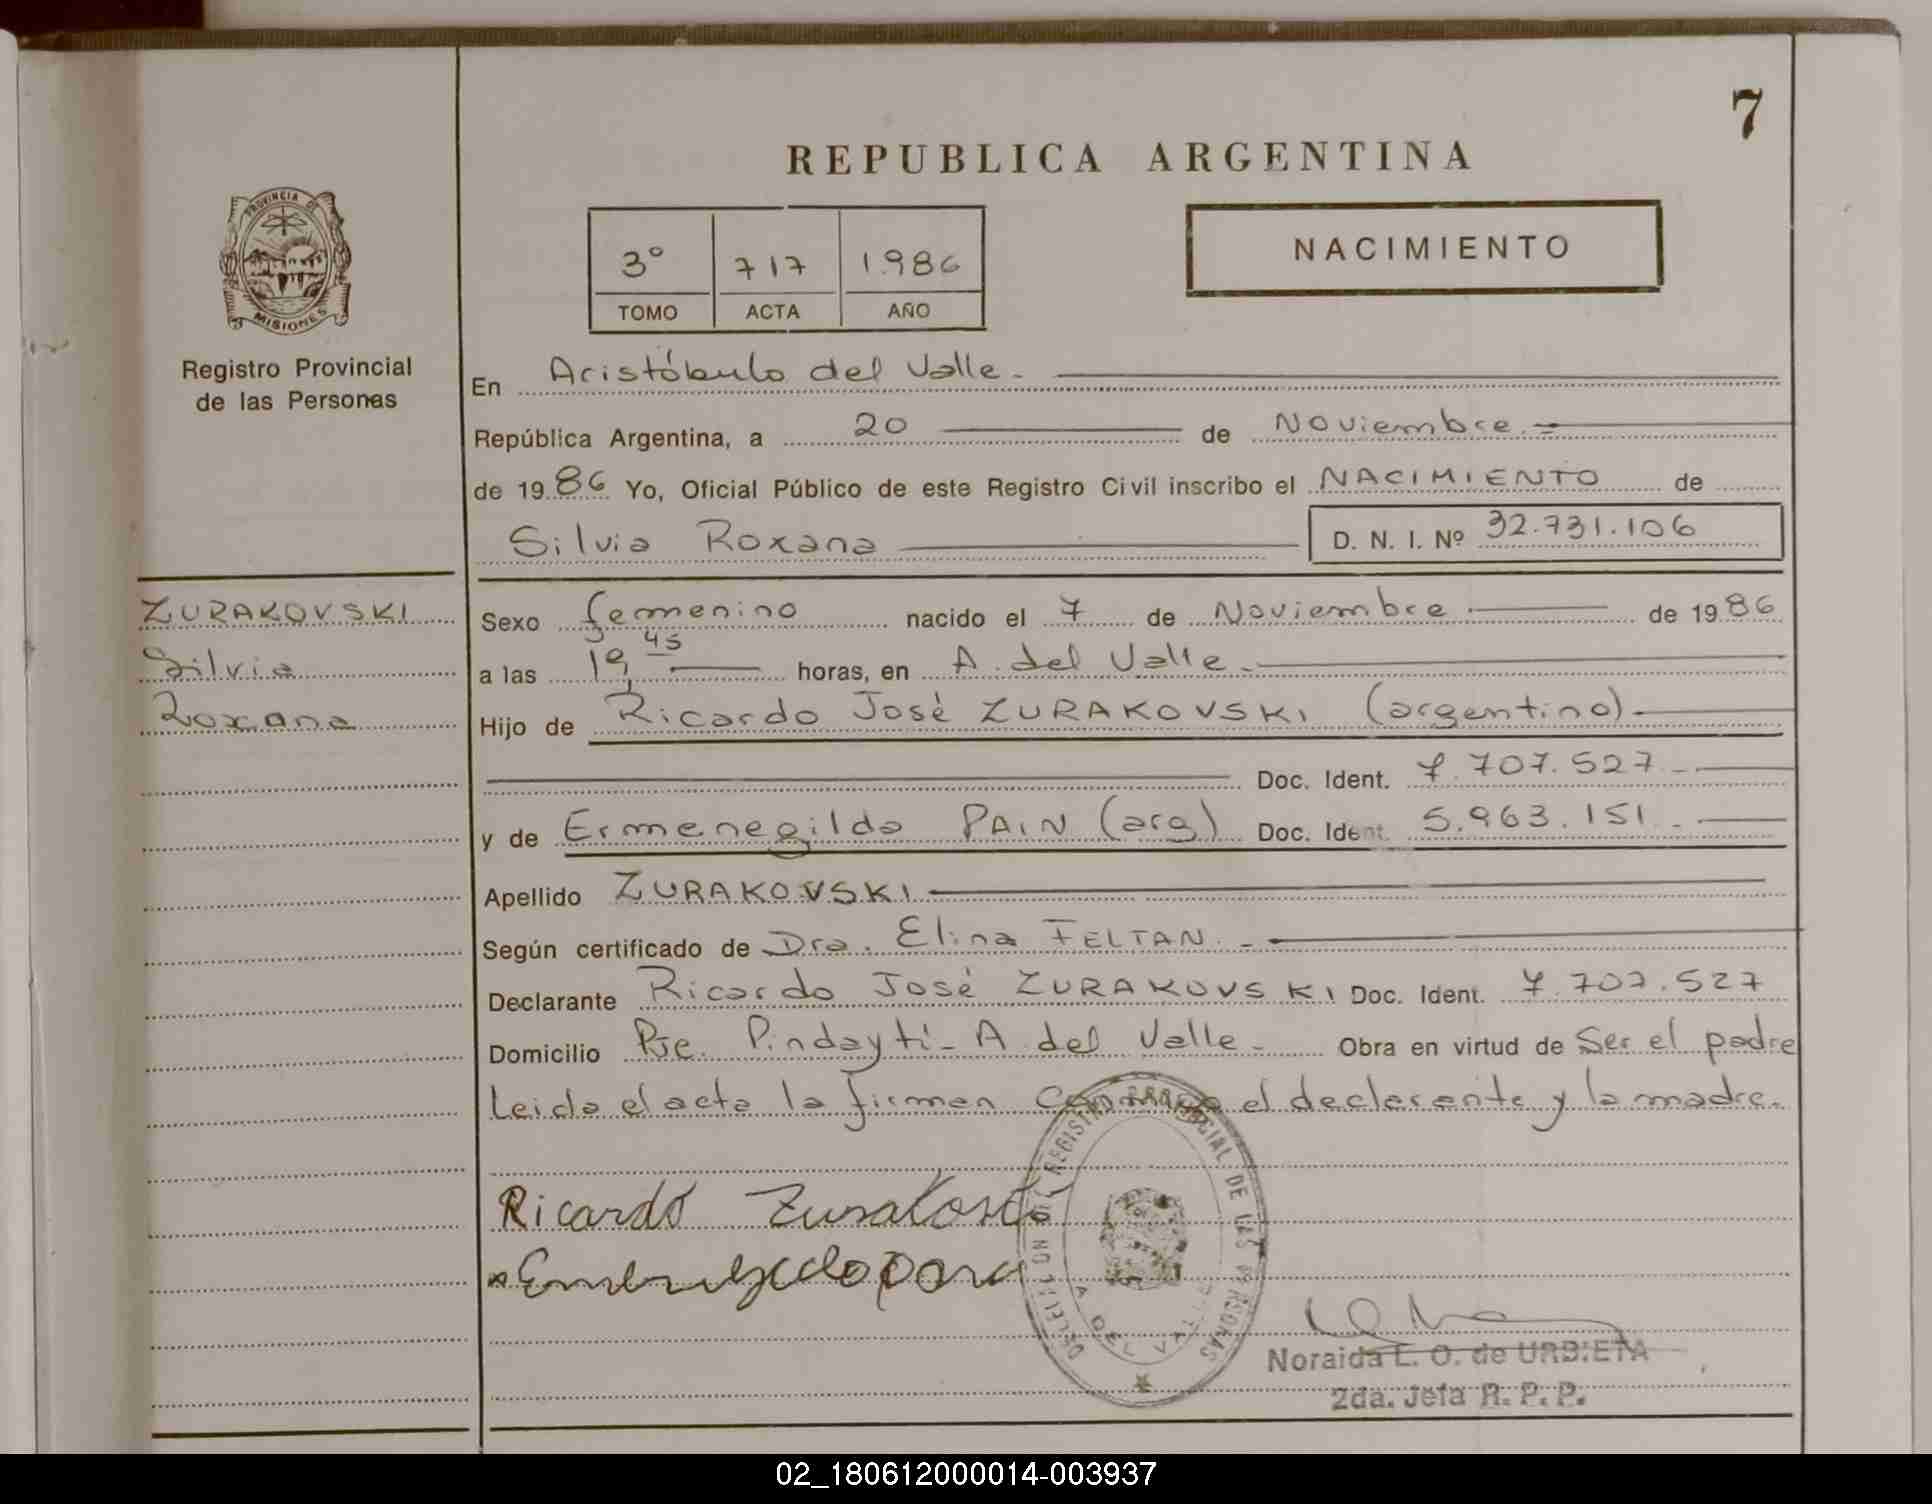 7
REPUBLICA ARGENTINA
PROVINCIA DE
MISIONES
Registro Provincial
de las Personas
3° 717 1.986
TOMO ACTA AÑO
NACIMIENTO
En Aristóbulo del Valle.
República Argentina, a 20 de Noviembre.=
de 1986 Yo, Oficial Público de este Registro Civil inscribo el NACIMIENTO de
Silvia Roxana D. N. I. Nº 32.731.106
ZURAKOVSKI
Silvia
Roxana
Sexo femenino nacido el 7 de Noviembre de 1986
a las 19,45 horas, en A. del Valle.
Hijo de Ricardo José ZURAKOVSKI (argentino)
Doc. Ident. 7.707.527
y de Ermenegilda PAIN (arg) Doc. Ident. 5.963.151.
Apellido ZURAKOVSKI
Según certificado de Dra. Elina FELTAN.
Declarante Ricardo José ZURAKOVSKI Doc. Ident. 7.707.527
Domicilio Pje. Pindaytí - A del Valle - Obra en virtud de Ser el padre
Leida el acta la firman conmigo el declarante y la madre.
Ricardo
DELEGACION REGISTRO PROVINCIAL DE LAS PERSONAS
A DEL VALLE
Noraida L. O. de URBIETA
2da. Jefa R. P. P.
02_180612000014-003937